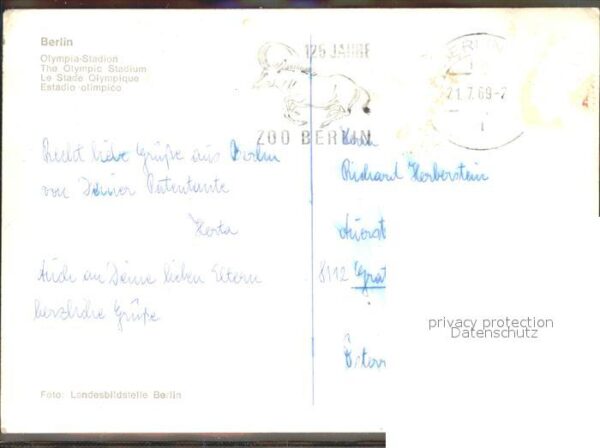 Berlin
Olympia-Stadion
The Olympic Stadium
Le Stade Olympique
Estadio olímpico
125 JAHRE
ZOO BERLIN
BERLIN
21.7.69-
1
Recht liebe Grüße aus Berlin
von Deiner Patentante
Herta
Auch an Deine lieben Eltern
herzliche Grüße
Herrn
Richard Herberstein
8112 Grat
Österr
privacy protection
Datenschutz
Foto: Landesbildstelle Berlin